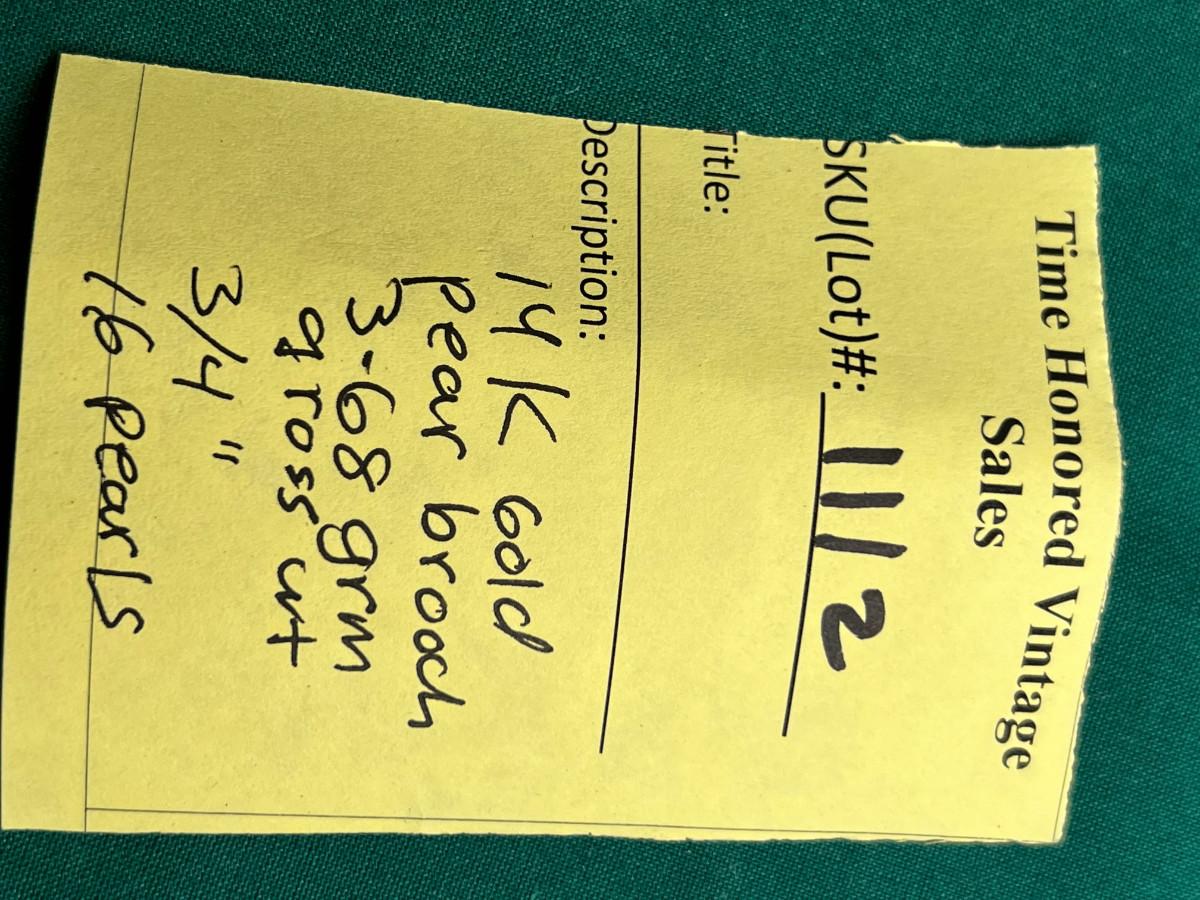 Time Honored Vintage
Sales
SKU(Lot)#: 1112
Title:
Description:
14K Gold
pear brooch
3.68 grm
gross wt
3/4 "
16 pearls